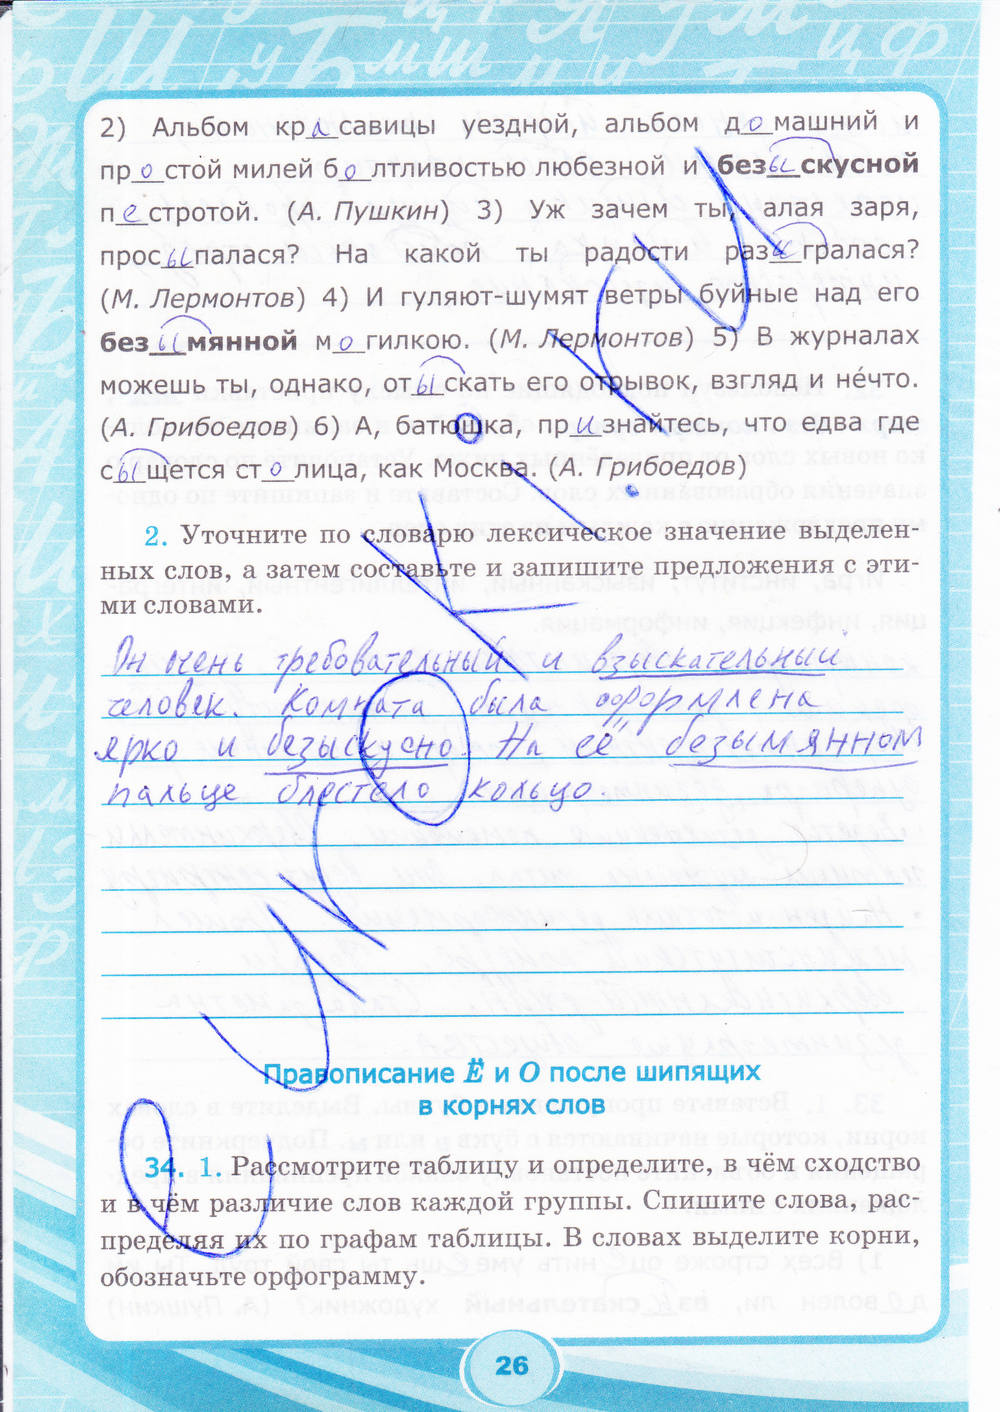 2) Альбом кра савицы уездной, альбом до машний и
про стой милей бо лтливостью любезной и безы скусной
пе стротой. (А. Пушкин) 3) Уж зачем ты, алая заря,
просы палася? На какой ты радости разы гралася?
(М. Лермонтов) 4) И гуляют-шумят ветры буйные над его
безы мянной мо гилкою. (М. Лермонтов) 5) В журналах
можешь ты, однако, оты скать его отрывок, взгляд и не́что.
(А. Грибоедов) 6) А, батюшка, при знайтесь, что едва где
сы щется сто лица, как Москва. (А. Грибоедов)
2. Уточните по словарю лексическое значение выделен-
ных слов, а затем составьте и запишите предложения с эти-
ми словами.
Он очень требовательный и взыскательный
человек. Комната была оформлена
ярко и безыскусно На её безымянном
пальце блестело кольцо.
Правописание Ё и О после шипящих
в корнях слов
34. 1. Рассмотрите таблицу и определите, в чём сходство
и в чём различие слов каждой группы. Спишите слова, рас-
пределяя их по графам таблицы. В словах выделите корни,
обозначьте орфограмму.
26